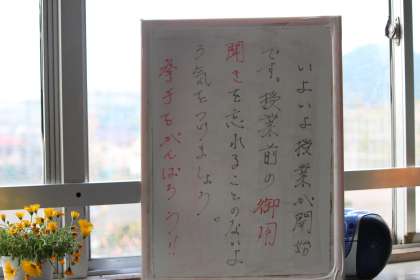 いよいよ授業が開始
です。授業前の御用
聞きを忘れることのないよ
う気をつけましょう。
挙手をがんばろう!!